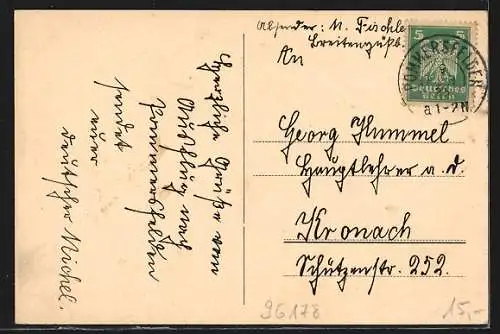 Absender: N. Fischle
Breitengüßb.
An
Georg Hummel
Hauptlehrer a. d.
Kronach
Schützenstr. 252.
Herzliche Grüße vom
Ausflug nach
Pommersfelden
sendet
euer
deutscher Michel.
5 5
Deutsches
Reich
POMMERSFELDEN
1-2N
96178
15,-